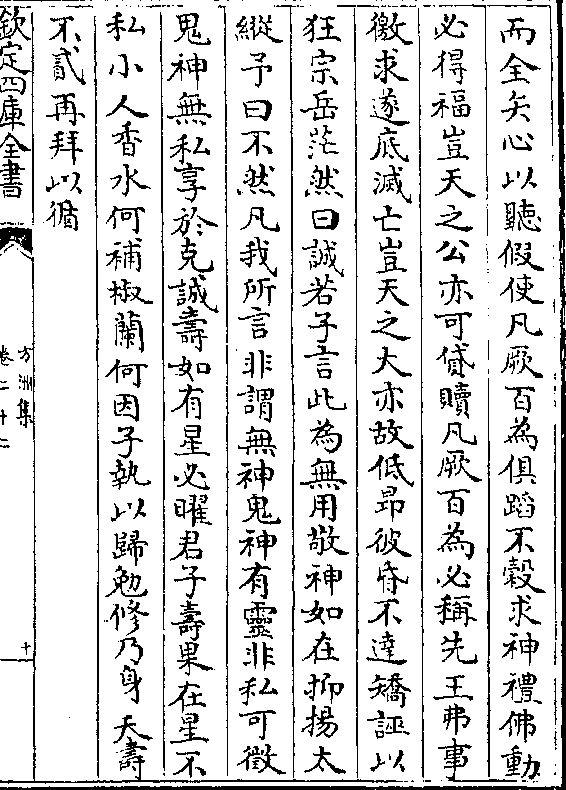 而全矢心以聽假使凡厥百為俱蹈不穀求神禮佛動
必得福豈天之公亦可貸贖凡厥百為必稱先王弗事
徼求遂底滅亡豈天之大亦故低昂彼昏不達矯誣以
狂宗岳茫然曰誠若子言此為無用敬神如在抑揚太
縱予曰不然凡我所言非謂無神鬼神有靈非私可徼
鬼神無私享於克誠壽如有星必曜君子壽果在星不
私小人香水何補椒蘭何因子執以歸勉修乃身夭壽
不貳再拜以循
欽定四庫全書
方洲集
卷二十二
十